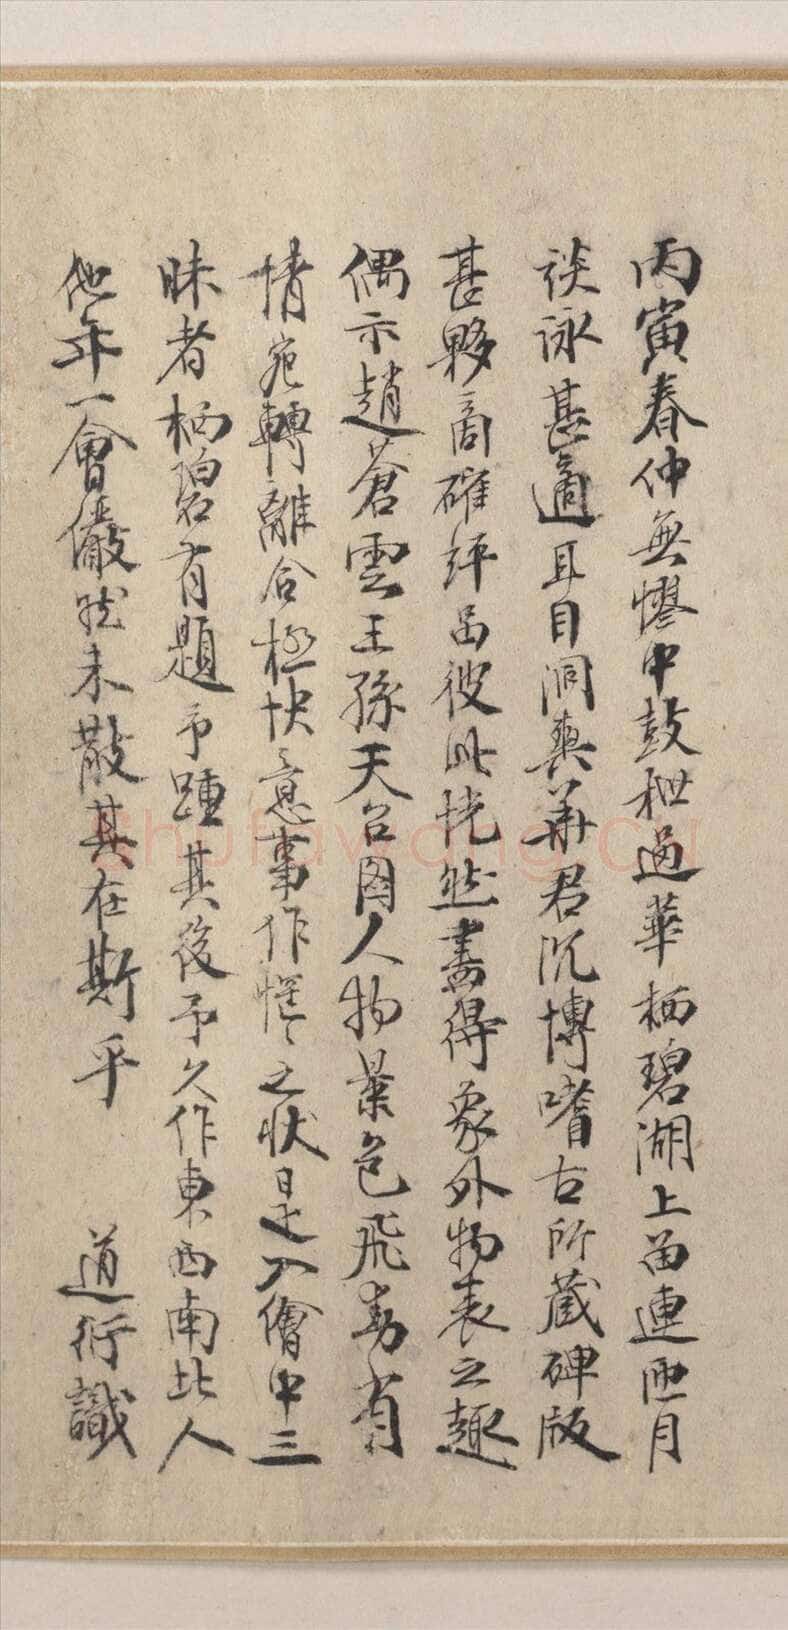 丙寅春仲無憀中鼓枻過華栖碧湖上留連匝月
談詠甚適耳目洞爽華君沉博嗜古所蔵碑版
甚夥商確評品彼此恍然盡得象外物表之趣
偶示趙蒼雲王孫天台圖人物景色飛動有
情宛轉離合極快意事作惓〻之状是入繪中三
昧者栖碧有題予踵其後予久作東西南北人
他年一會儼然未散其在斯乎 道衍識
shufawang.cn